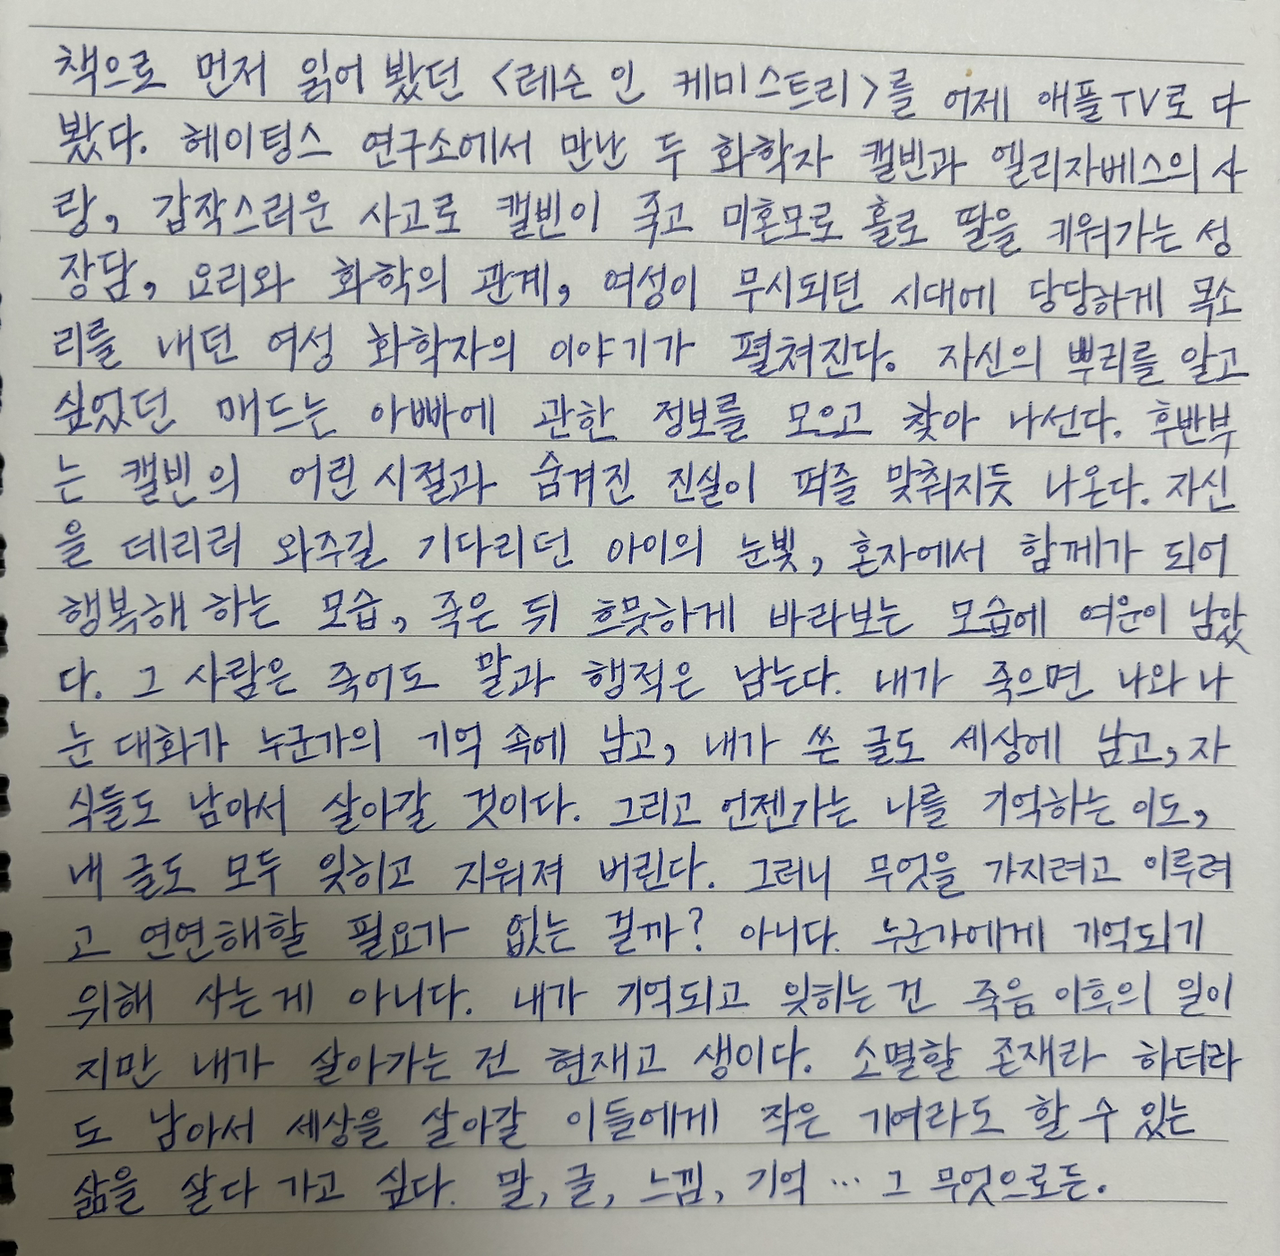 책으로 먼저 읽어 봤던 <레슨 인 케미스트리>를 어제 애플TV로 다
봤다. 헤이팅스 연구소에서 만난 두 화학자 캘빈과 엘리자베스의 사
랑, 갑작스러운 사고로 캘빈이 죽고 미혼모로 홀로 딸을 키워가는 성
장담, 요리와 화학의 관계, 여성이 무시되던 시대에 당당하게 목소
리를 내던 여성 화학자의 이야기가 펼쳐진다. 자신의 뿌리를 알고
싶었던 매드는 아빠에 관한 정보를 모으고 찾아 나선다. 후반부
는 캘빈의 어린 시절과 숨겨진 진실이 퍼즐 맞춰지듯 나온다. 자신
을 데리러 와주길 기다리던 아이의 눈빛, 혼자에서 함께가 되어
행복해 하는 모습, 죽은 뒤 흐뭇하게 바라보는 모습에 여운이 남았
다. 그 사람은 죽어도 말과 행적은 남는다. 내가 죽으면 나와 나
눈 대화가 누군가의 기억 속에 남고, 내가 쓴 글도 세상에 남고, 자
식들도 남아서 살아갈 것이다. 그리고 언젠가는 나를 기억하는 이도,
내 글도 모두 잊히고 지워져 버린다. 그러니 무엇을 가지려고 이루려
고 연연해할 필요가 없는 걸까? 아니다. 누군가에게 기억되기
위해 사는게 아니다. 내가 기억되고 잊히는 건 죽음 이후의 일이
지만 내가 살아가는 건 현재고 생이다. 소멸할 존재라 하더라
도 남아서 세상을 살아갈 이들에게 작은 기여라도 할 수 있는
삶을 살다 가고 싶다. 말, 글, 느낌, 기억 … 그 무엇으로든.